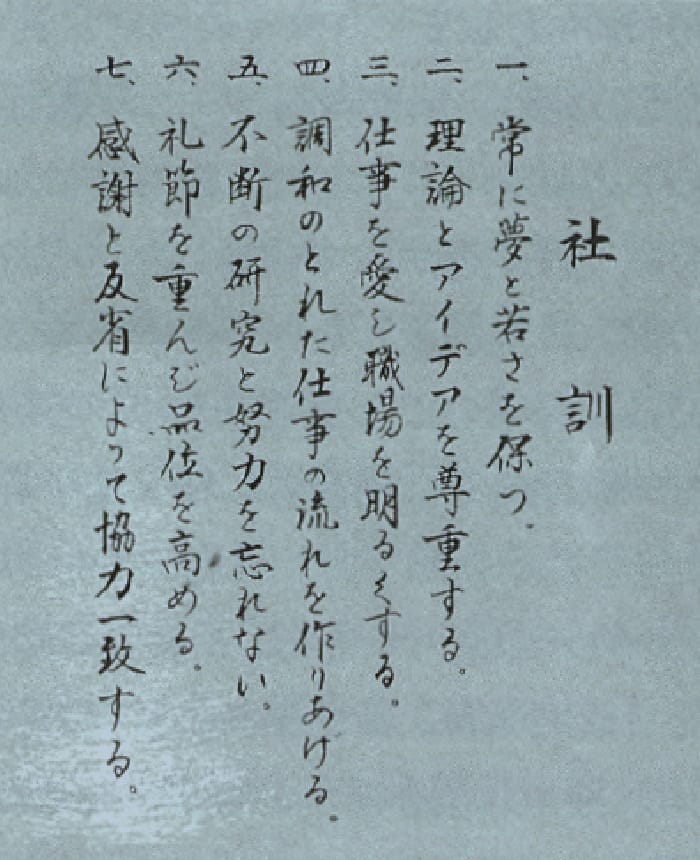 社訓
一、常に夢と若さを保つ。
二、理論とアイデアを尊重する。
三、仕事を愛し職場を明るくする。
四、調和のとれた仕事の流れを作りあげる。
五、不断の研究と努力を忘れない。
六、礼節を重んじ品位を高める。
七、感謝と反省によって協力一致する。